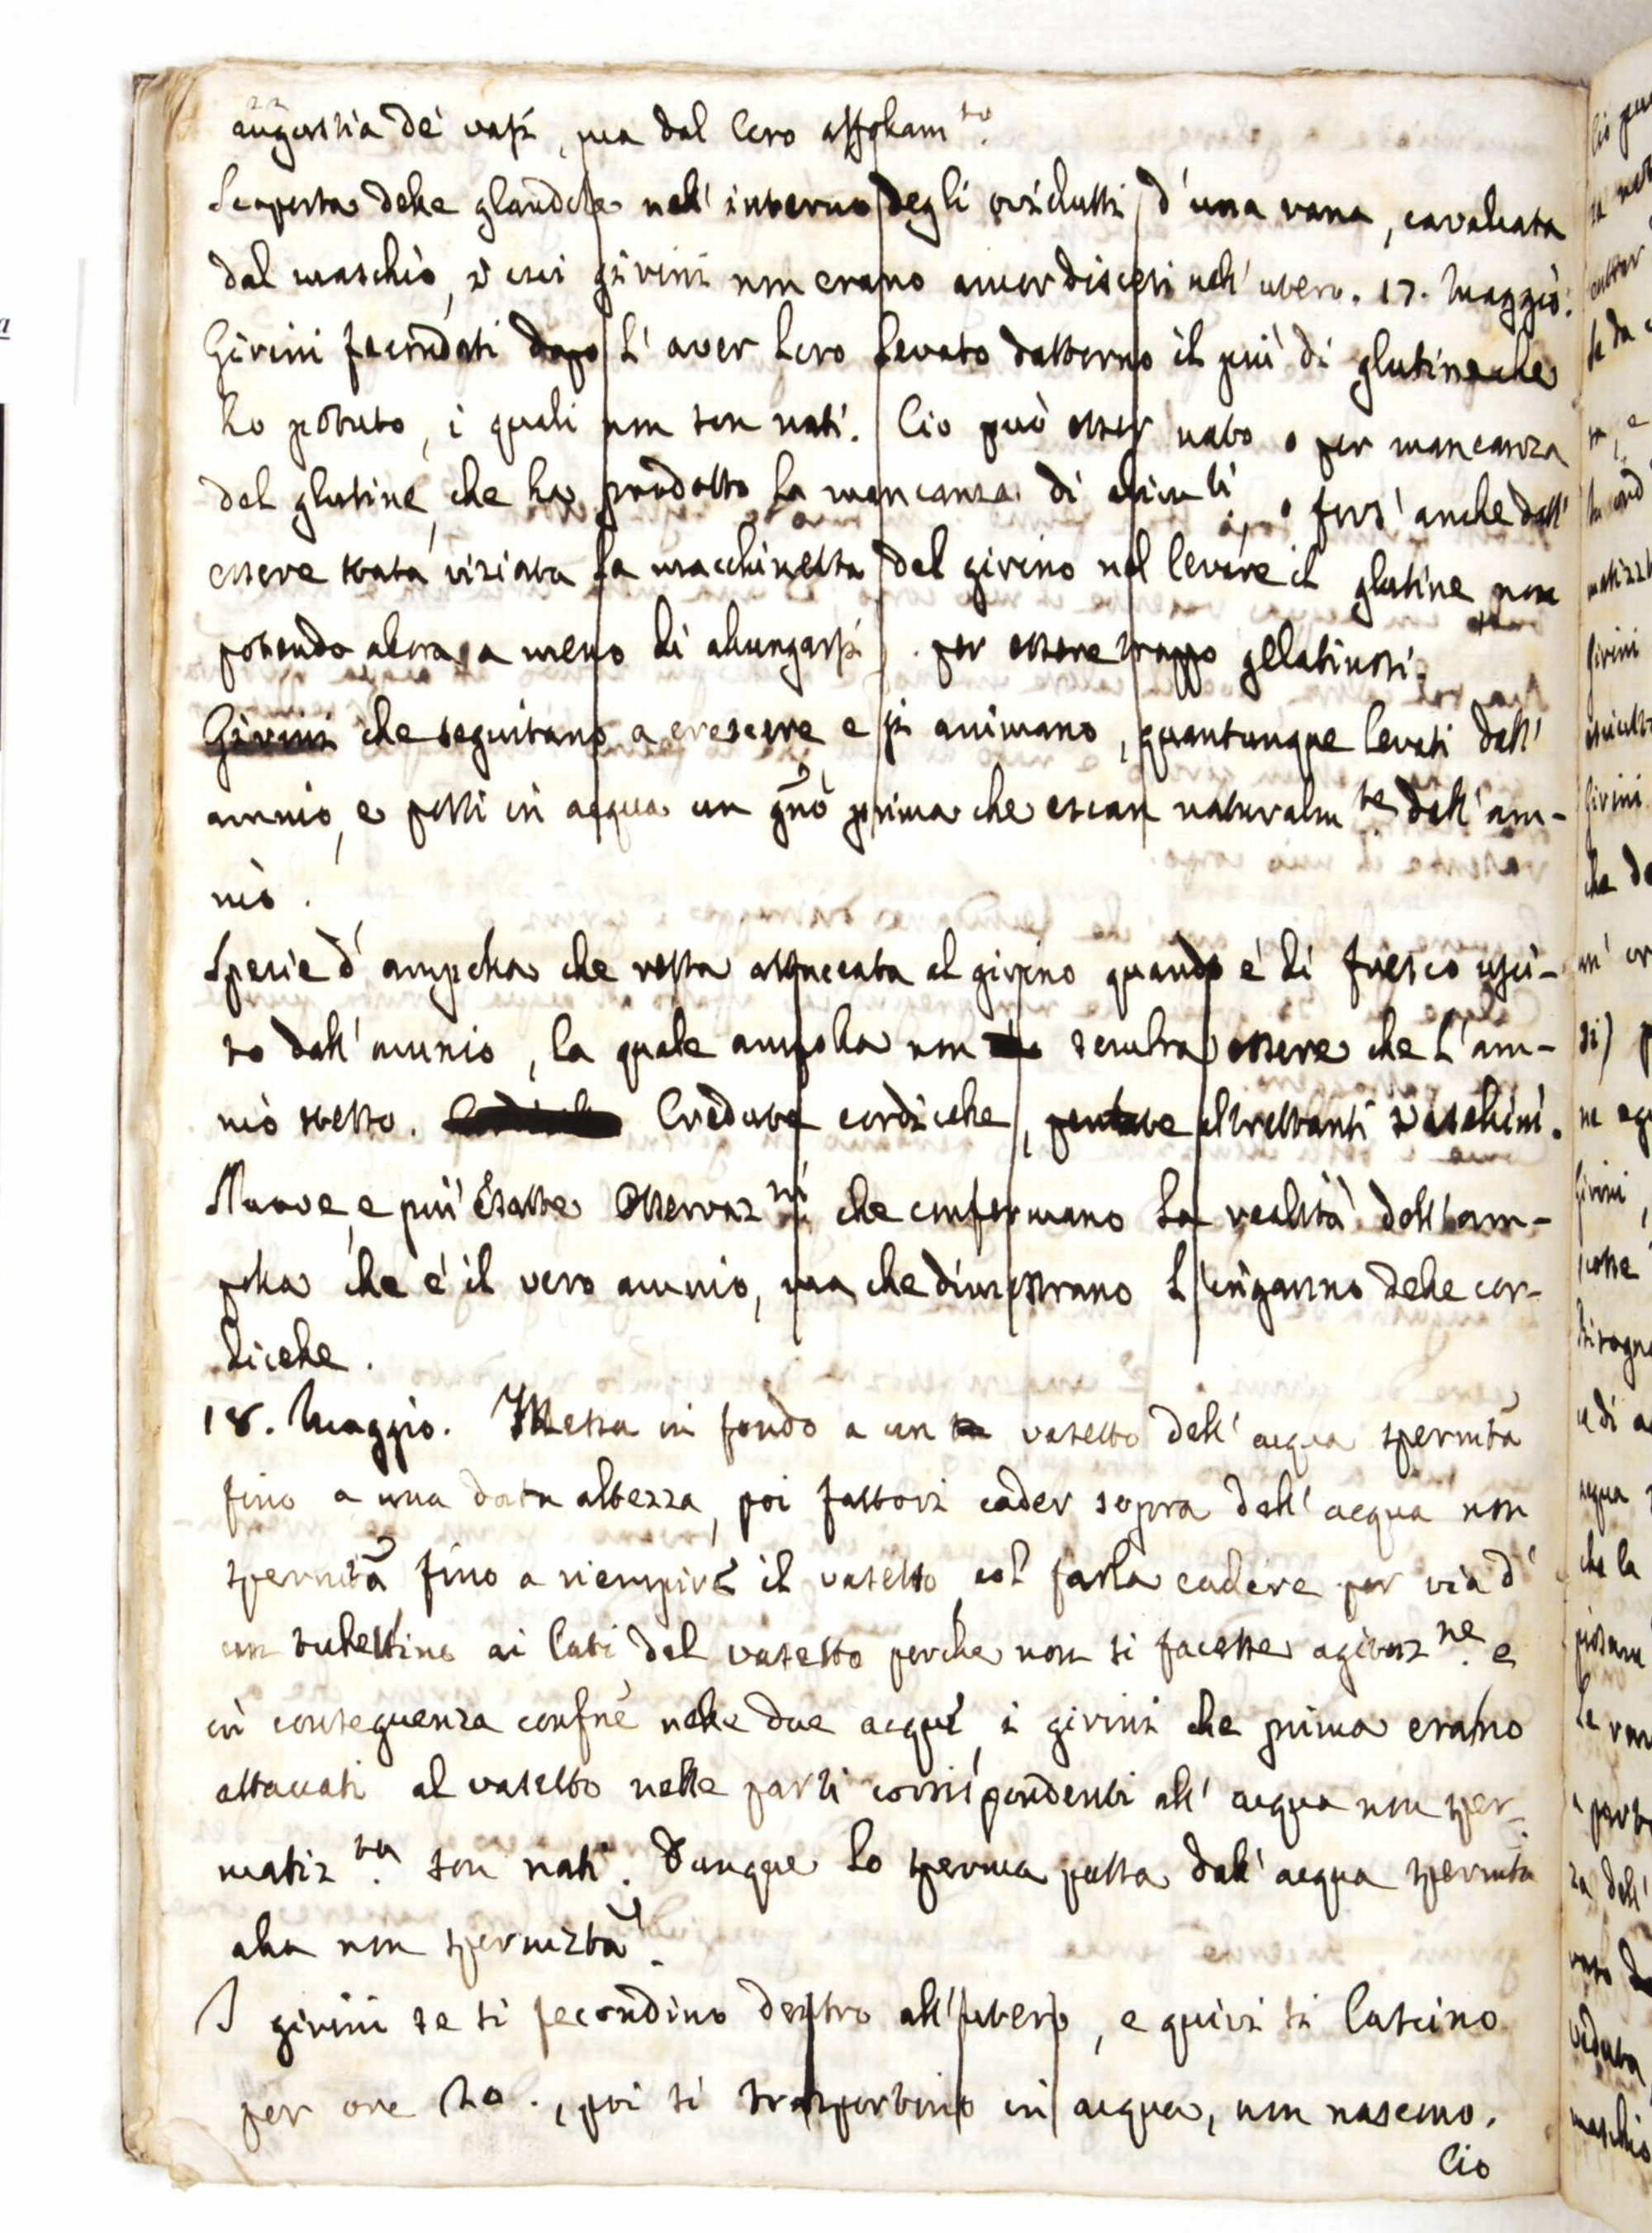 angustia de' vasi, ma dal loro affollam.to
Scoperta delle glandole nell'interno degli ovidutti d'una rana, cavalcata
dal maschio, i cui girini non erano ancor discesi nell'utero. 17. Maggio.
Girini fecondati dopo l'aver loro levato dattorno il più di glutine che
ho potuto, i quali non son nati. Ciò può esser nato o per mancanza
del glutine, che ha prodotto la mancanza di alim.ti, o fors'anche dall'
essere stata viziata la macchinetta del girino nel levare il glutine, non
potendo allora a meno di allungarsi per essere troppo gelatinosi.
Girini che seguitano a crescere e si animano, quantunque levati dall'
amnio, e posti in acqua un gno prima che escan naturalm.te dall'am-
nio.
Spezie d'ampolla che resta attaccata al girino quando è di fresco usci-
to dall'amnio, la quale ampolla non sembra essere che l'am-
nio stesso. Credute cordicelle, altrettanti vasellini.
Nuove, e più esatte osservaz.ni che confermano la realità dell'am-
polla che è il vero amnio, ma che dimostrano l'inganno delle cor-
dicelle.
18. Maggio. Messa in fondo a un vasetto dell'acqua spermta
fino a una data altezza, poi fattovi cader sopra dell'acqua non
spermta fino a riempire il vasetto, col farla cadere per via d'
un tubettino ai lati del vasetto perche non si facesse agitaz.ne e
in conseguenza confne nelle due acque, i girini che prima erano
attaccati al vasetto nelle parti corrispondenti all'acqua non sper-
matiz.ta son nati. Dunque lo sperma passa dall'acqua spermta
alla non spermzta.
I girini se si fecondino dentro all'utero, e quivi si lascino
per ore 20., poi si trasportino in acqua, non nascono.
Ciò